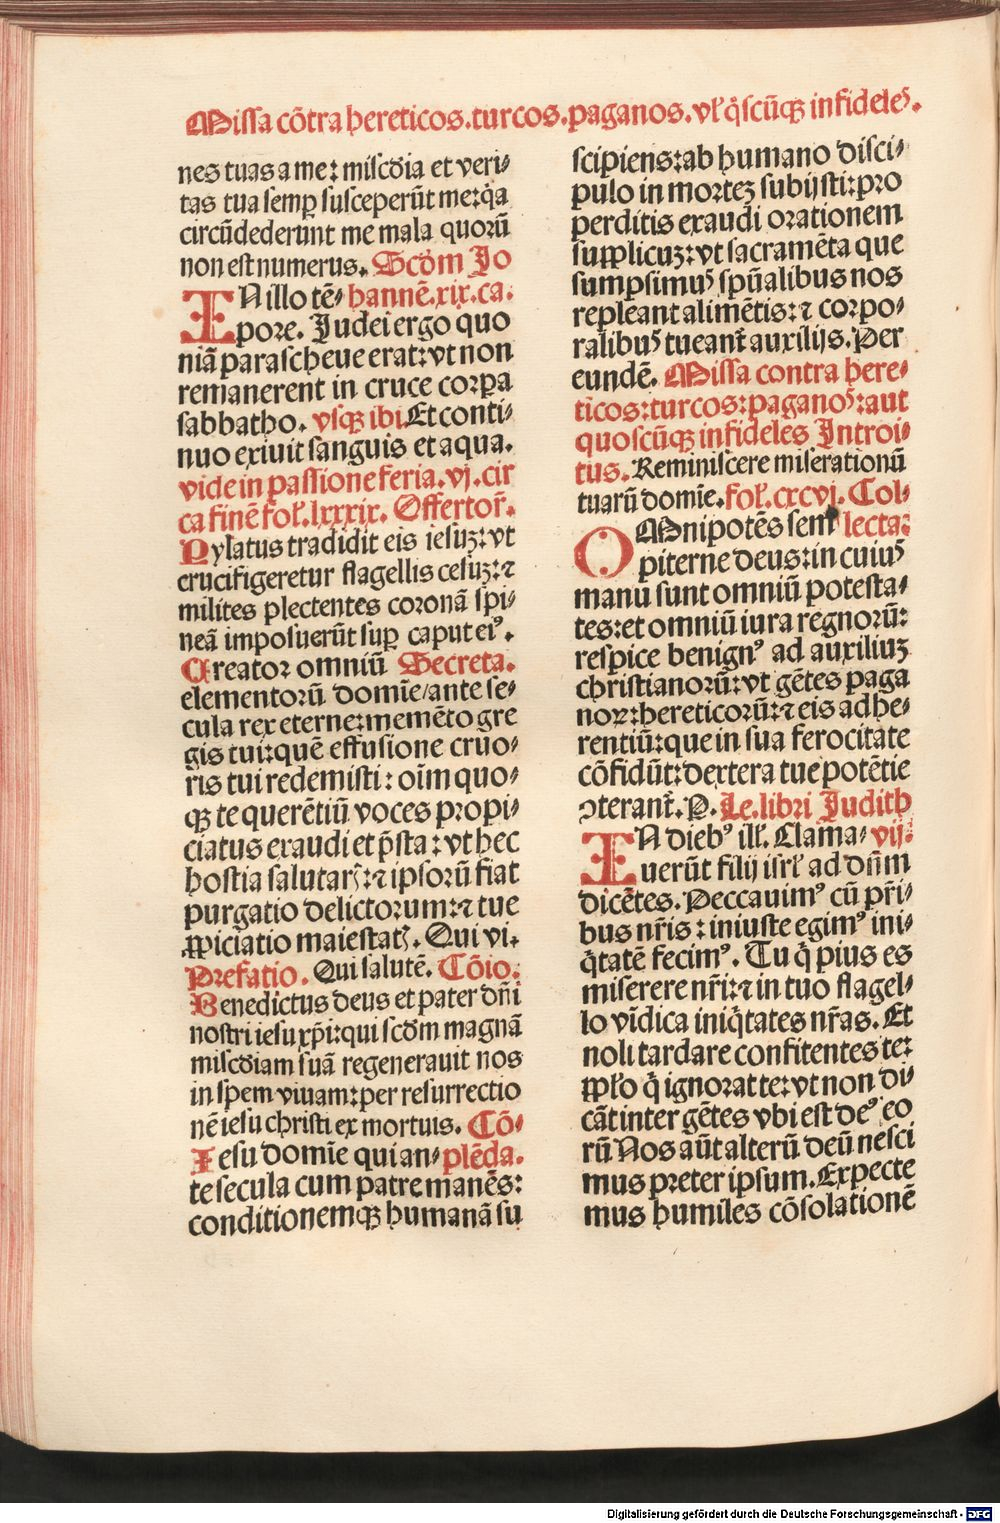 Missa cōtra hereticos.turcos.paganos.vl' q̄scūqꝫ infideleꝰ.
nes tuas a me: misc̄dia et veri⸗
tas tua semꝑ susceperūt me:q̄a
circūdederunt me mala quorū
non est numerus. Scd̄m Jo
IN illo tē⸗ hannē.xix.ca.
pore. Judei ergo quo
niā parascheue erat: vt non
remanerent in cruce corpa
sabbatho. vsqꝫ ibi Et conti⸗
nuo exiuit sanguis et aqua.
vide in passione feria.vj.cir
ca finē fol'.lxxxix. Offertor̄.
Pylatus tradidit eis iesuꝫ: vt
crucifigeretur flagellis cesuꝫ: ⁊
milites plectentes coronā spi⸗
neā imposuerūt suꝑ caput eiꝰ.
Creator omniū Secreta.
elementorū domīe/ante se⸗
cula rex eterne:memēto gre
gis tui:quē effusione cruo⸗
ris tui redemisti: oīm quo⸗
qꝫ te querētiū voces propi⸗
ciatus exaudi et p̄sta: vt hec
hostia salutarꝭ: ⁊ ipsorū fiat
purgatio delictorum: ⁊ tue
ꝓpiciatio maiestatꝭ. Qui vi.
Prefatio. Qui salutē. Cōio.
Benedictus deus et pater dn̄i
nostri iesu xp̄i: qui scd̄m magnā
misc̄diam suā regenerauit nos
in spem viuam: per resurrectio
nē iesu christi ex mortuis. Cō⸗
Iesu domīe qui an⸗ plēda.
te secula cum patre manēs:
conditionemqꝫ humanā su
scipiens: ab humano disci⸗
pulo in morteꝫ subijsti: pro
perditis exaudi orationem
supplicuꝫ: vt sacramēta que
sumpsimuꝰ spūalibus nos
repleant alimētis: ⁊ corpo⸗
ralibuꝰ tueant̄ auxilijs. Per
eundē. Missa contra here⸗
ticos: turcos: paganoꝰ: aut
quoscūqꝫ infideles Introi⸗
tus. Reminiscere miserationū
tuarū domīe. fol'. cxcvj. Col⸗
OMnipotēs sem⸗ lecta:
piterne deus: in cuiuꝰ
manu sunt omniū potesta⸗
tes: et omniū iura regnorū:
respice benignꝰ ad auxiliuꝫ
christianorū: vt gētes paga
noꝝ: hereticorū: ⁊ eis adhe⸗
rentiū: que in sua ferocitate
cōfidūt: dextera tue potētie
ꝯterant̄. P. Le. libri Judith
IN diebꝰ ill'. Clama⸗ vij.
uerūt filij isrl' ad dn̄m
dicētes. Peccauimꝰ cū pr̄i⸗
bus nr̄is: iniuste egimꝰ ini⸗
q̄tatē fecimꝰ. Tu q̄ pius es
miserere nr̄i: ⁊ in tuo flagel⸗
lo vīdica iniq̄tates nr̄as. Et
noli tardare confitentes te:
ꝓpl'o q̄ ignorat te: vt non di⸗
cāt inter gētes vbi est deꝰ eo
rū Nos aūt alterū deū nesci
mus preter ipsum. Expecte
mus humiles cōsolationē
Digitalisierung gefördert durch die Deutsche Forschungsgemeinschaft - DFG